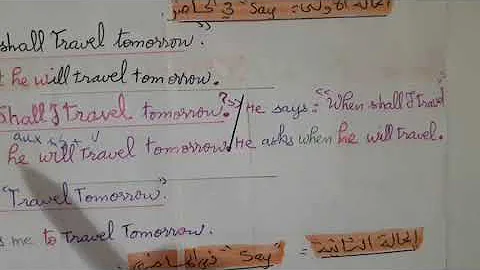 الحالة الأولى: "Say" في حاضر
shall Travel tomorrow."
he will travel tomorrow.
Shall I travel tomorrow?" / He says: "When shall I travel
aux s + v
he will travel tomorrow. / He asks when he will travel.
"Travel Tomorrow."
me to Travel Tomorrow.
الحالة الثانية = "Say"